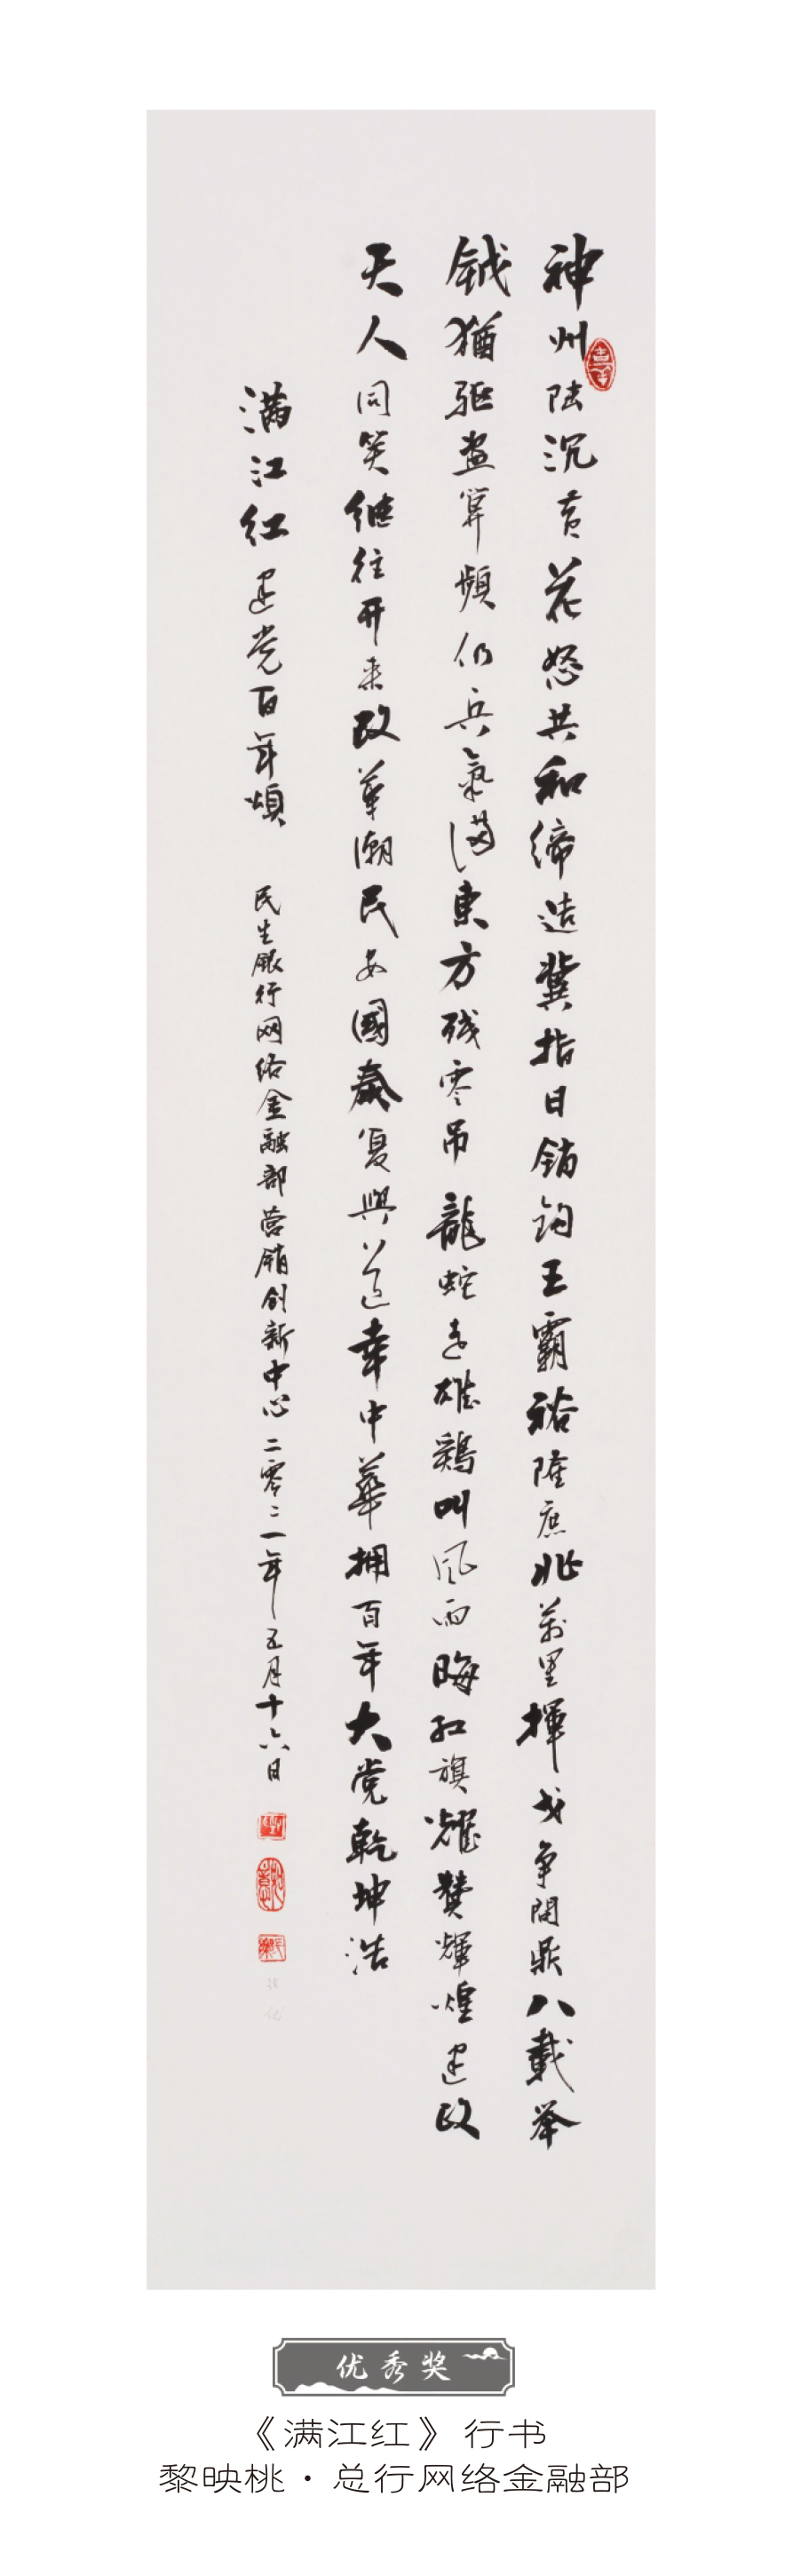 神州陆沉黄花怒共和缔造冀指日销钩王霸裕隆庶兆万里挥戈争问鼎八载举
钺犹驱盗算频仍兵气满东方残零吊龙蛇走雄鸡叫风雨晦红旗耀赞辉煌建政
天人同笑继往开来改革潮民安国泰复兴道幸中华拥百年大党乾坤浩
满江红建党百年颂 民生银行网络金融部营销创新中心二零二一年五月十六日
优秀奖
《满江红》行书
黎映桃·总行网络金融部